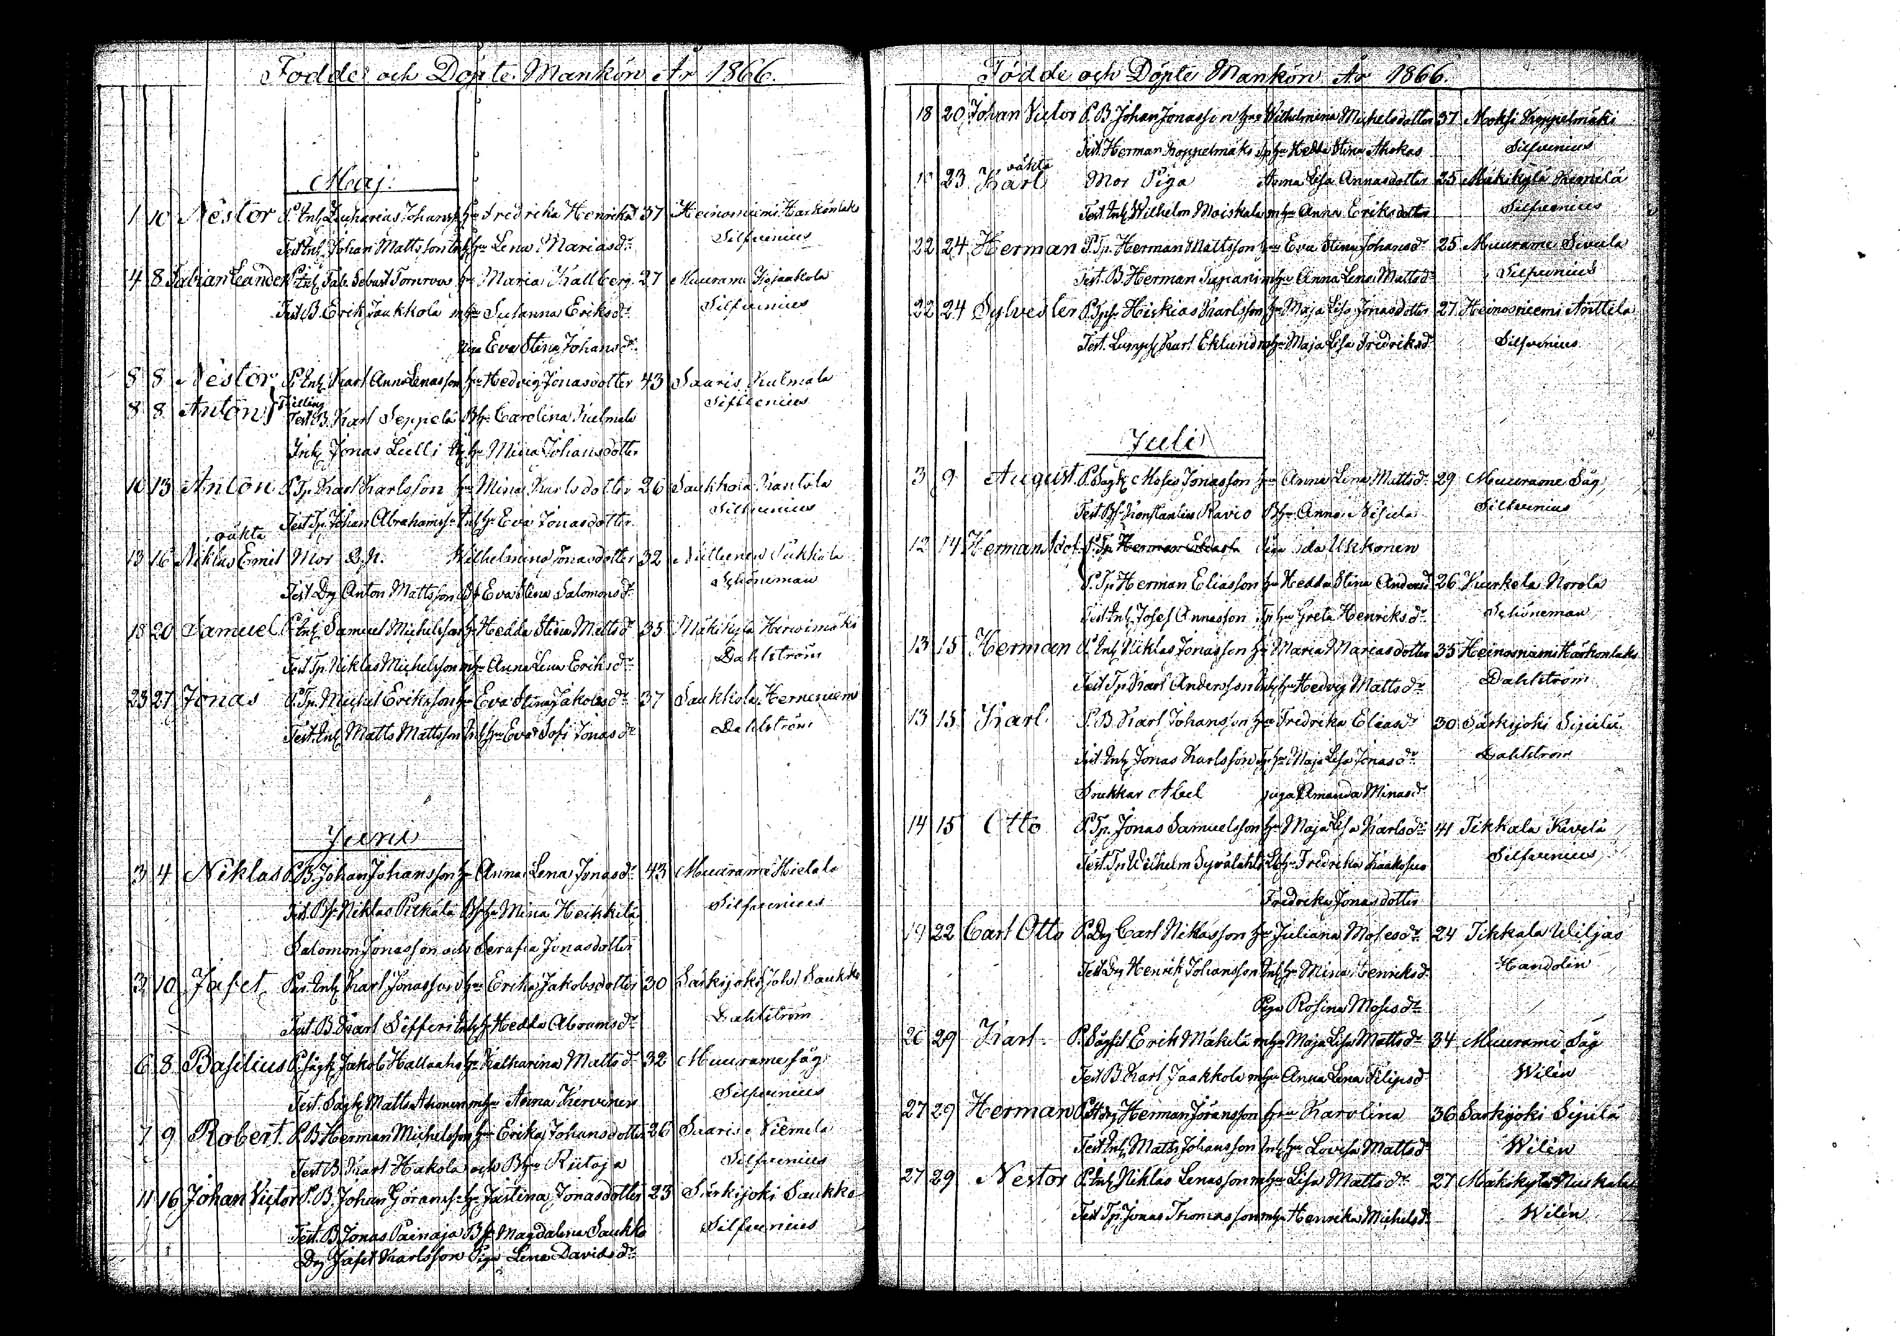 Födde och Döpte Mankön År 1866.
Maj.
1 10 Nestor P. Inh. Zacharias Johanss. h. Fredrika Henriksd 37 Heinoniemi Harkönlaks
Test Inh. Johan Mattsson Inh. hu Lena Mariasdr Silfvenius
4 8 Fabian Leander P. Inh. Fab. Sebast Tornroos hu Maria Kallberg 27 Muurame Kojaakola
Test B. Erik Jaakkola m hu Susanna Eriksdr Silfvenius
Piga Eva Stina Johansdr
8 8 Nestor P. Inh. Karl Annä Lenasson hu Hedvig Jonasdotter 43 Saaris Kulmala
8 8 Anton } Tvilling Test B. Karl Seppelä B hu Carolina Kulmala Silfvenius
Inh. Jonas Lulli hu Mina Johansdotter
10 13 Anton P. Tp Karl Karlsson hu Mina Karlsdotter 26 Saukkola Kantola
Test Tp. Johan Abrahamss. Inh hu Eva Jonasdotter Silfvenius
13 16 Niklas Emil oäkta Mor D.N. Wilhelmina Jonasdotter 32 Nuttunen Pukkala
Test Dg Anton Mattsson Eva Stina Salomonsdr Schöneman
18 20 Samuel P. Inh. Samuel Michelsson hu Hedda Stina Mattsdr 35 Mäkikylä Hirvimäki
Test Tp. Niklas Michelsson m hu Anna Lena Eriksdr Dahlström
23 27 Jonas P. Tp. Michel Eriksson hu Eva Stina Jakobsdr 37 Saukkola Herneniemi
Test. Inh. Matts Mattsson Inh hu Eva Sofi Jonasdr Dahlström
Juni
3 4 Niklas P. B. Johan Johansson hu Anna Lena Jonasdr 43 Muurame Hietala
Test. Bs. Niklas Pitkälä B hu Mina Heikkilä Silfvenius
Salomon Jonasson och Serafia Jonasdotter
3 10 Jafet Inh. Karl Jonasson hu Erika Jakobsdotter 30 Särkijoki Saukko
Test. B. Karl Sifferi Inh h Hedda Abramsdr Dahlström
6 8 Basilius P. Sågk. Jakob Hallaaho hu Katharina Mattsdr 32 Muurame Såg
Test. Sågk Matts Ahonen m hu Anna Kervinen Silfvenius
7 9 Robert P. B Herman Michelsson hu Erika Johansdotter 26 Saaris Niemelä
Test B. Karl Hakola och B hu Riitoja Silfvenius
11 16 Johan Victor P. B. Johan Göranss. hu Justina Jonasdotter 23 Särkijoki Saukko
Test. B. Jonas Päinaja B hu Magdalena Saukko Silfvenius
Dg Jafet Karlsson Piga Lena Davidsdr
Födde och Döpte Mankön År 1866.
18 20 Johan Victor P. B. Johan Jonasson hu Wilhelmina Michelsdotter 37 Moksi Koppelmäki
Test. Herman Koppelmäki hu Hedda Stina Ahokas Silfvenius
23 Karl oäkta Mor Piga Anna Lisa Annasdotter 25 Mäkikylä
Test. Inh. Wilhelm Moiskala m hu Anna Eriksdotter Silfvenius
22 24 Herman P. Tp. Herman Mattsson hu Eva Stina Johansdr 25 Muurame Sivula
Test. B. Herman m hu Anna Lena Mattsdr Silfvenius
22 24 Sylvester P. Hiskias Karlsson hu Maja Lisa Jonasdotter 27 Heinosniemi Anttila
Test. Karl Eklund m hu Maja Lisa Fredriksd Silfvenius
Juli
3 9 August P. Sågk Moses Jonasson hu Anna Lena Mattsdr 29 Muurame Såg
Test Bs. Konstantin Ravio B hu Anna Nisula Silfvenius
12 14 Herman Adol. P. Tp Herman Eliass Piga Ida Ukkonen
P. Tp. Herman Eliasson hu Hedda Stina Andersd 26 Kuurkela Norola
Test. Inh. Josef Annasson Tp hu Greta Henriksdr Schöneman
13 15 Herman P. Inh Niklas Jonasson hu Maria Mariasdotter 35 Heinosniemi Härkönlaks
Test Tp. Karl Andersson Inh hu Hedvig Mattsdr Dahlström
13 15 Karl P. B. Karl Johansson hu Fredrika Eliasdr 30 Särkijoki Sijula
Test. Inh Jonas Karlsson Tp hu Maja Lisa Jonasdr Dahlström
Snikkar Abel piga Amanda Minasdr
14 15 Otto P. Tp. Jonas Samuelsson hu Maja Lisa Karlsdr 41 Tikkala Kivelä
Test. Tp Wilhelm Syvälahti hu Fredrika Silfvenius
Fredrika Jonasdotter
19 22 Carl Otto P. Dg Carl Niklasson hu Juliana Mosesdr 24 Tikkala Wiljas
Test Dg Henrik Johansson Inh hu Mina Henriksd Handolin
Piga Rosina Mosesdr
26 29 Karl P. Erik Mäkelä m hu Maja Lisa Mattsdr 34 Muurame Såg
Test B. Karl Jaakkola m hu Anna Lena Filipsd Wilén
27 29 Herman P. Herman Göransson hu Karolina 36 Särkijoki Sijula
Test Inh Matts Johansson Inh hu Lovisa Mattsd Wilén
27 29 Nestor P. Inh Niklas Lenasson m hu Lisa Mattsdr 27 Mäkikylä
Test Tp. Jonas Thomasson m hu Henrika Michelsd Wilén